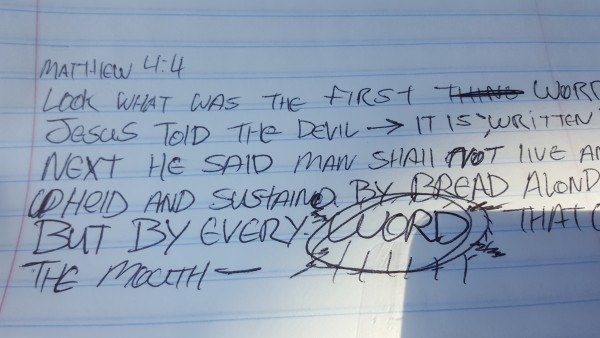 MATTHEW 4:4
LOOK WHAT WAS THE FIRST THING WORD
JESUS TOLD THE DEVIL → IT IS WRITTEN
NEXT HE SAID MAN SHALL NOT LIVE AN
UPHELD AND SUSTAIND BY BREAD ALOND
BUT BY EVERY WORD THAT
THE MOUTH —